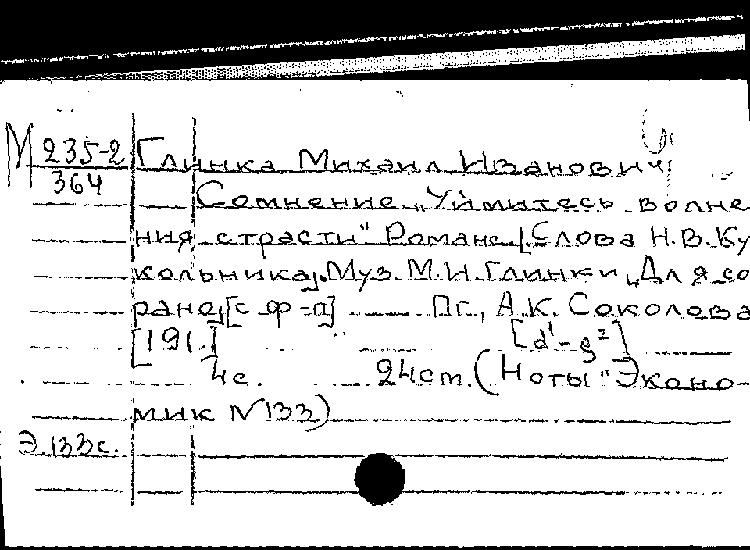 М 235-2
364
Глинка Михаил Иванович
Сомнение „Уймитесь волне
ния страсти" Романс [.Слова Н.В.Ку
кольника]. Муз. М.И.Глинки „Для со
рано [с ф-п] — Пг., А.К. Соколова
[191.] [d¹-g²]
4с. 24ст. (Ноты "Эконо-
мик N 133)
Э.133с.